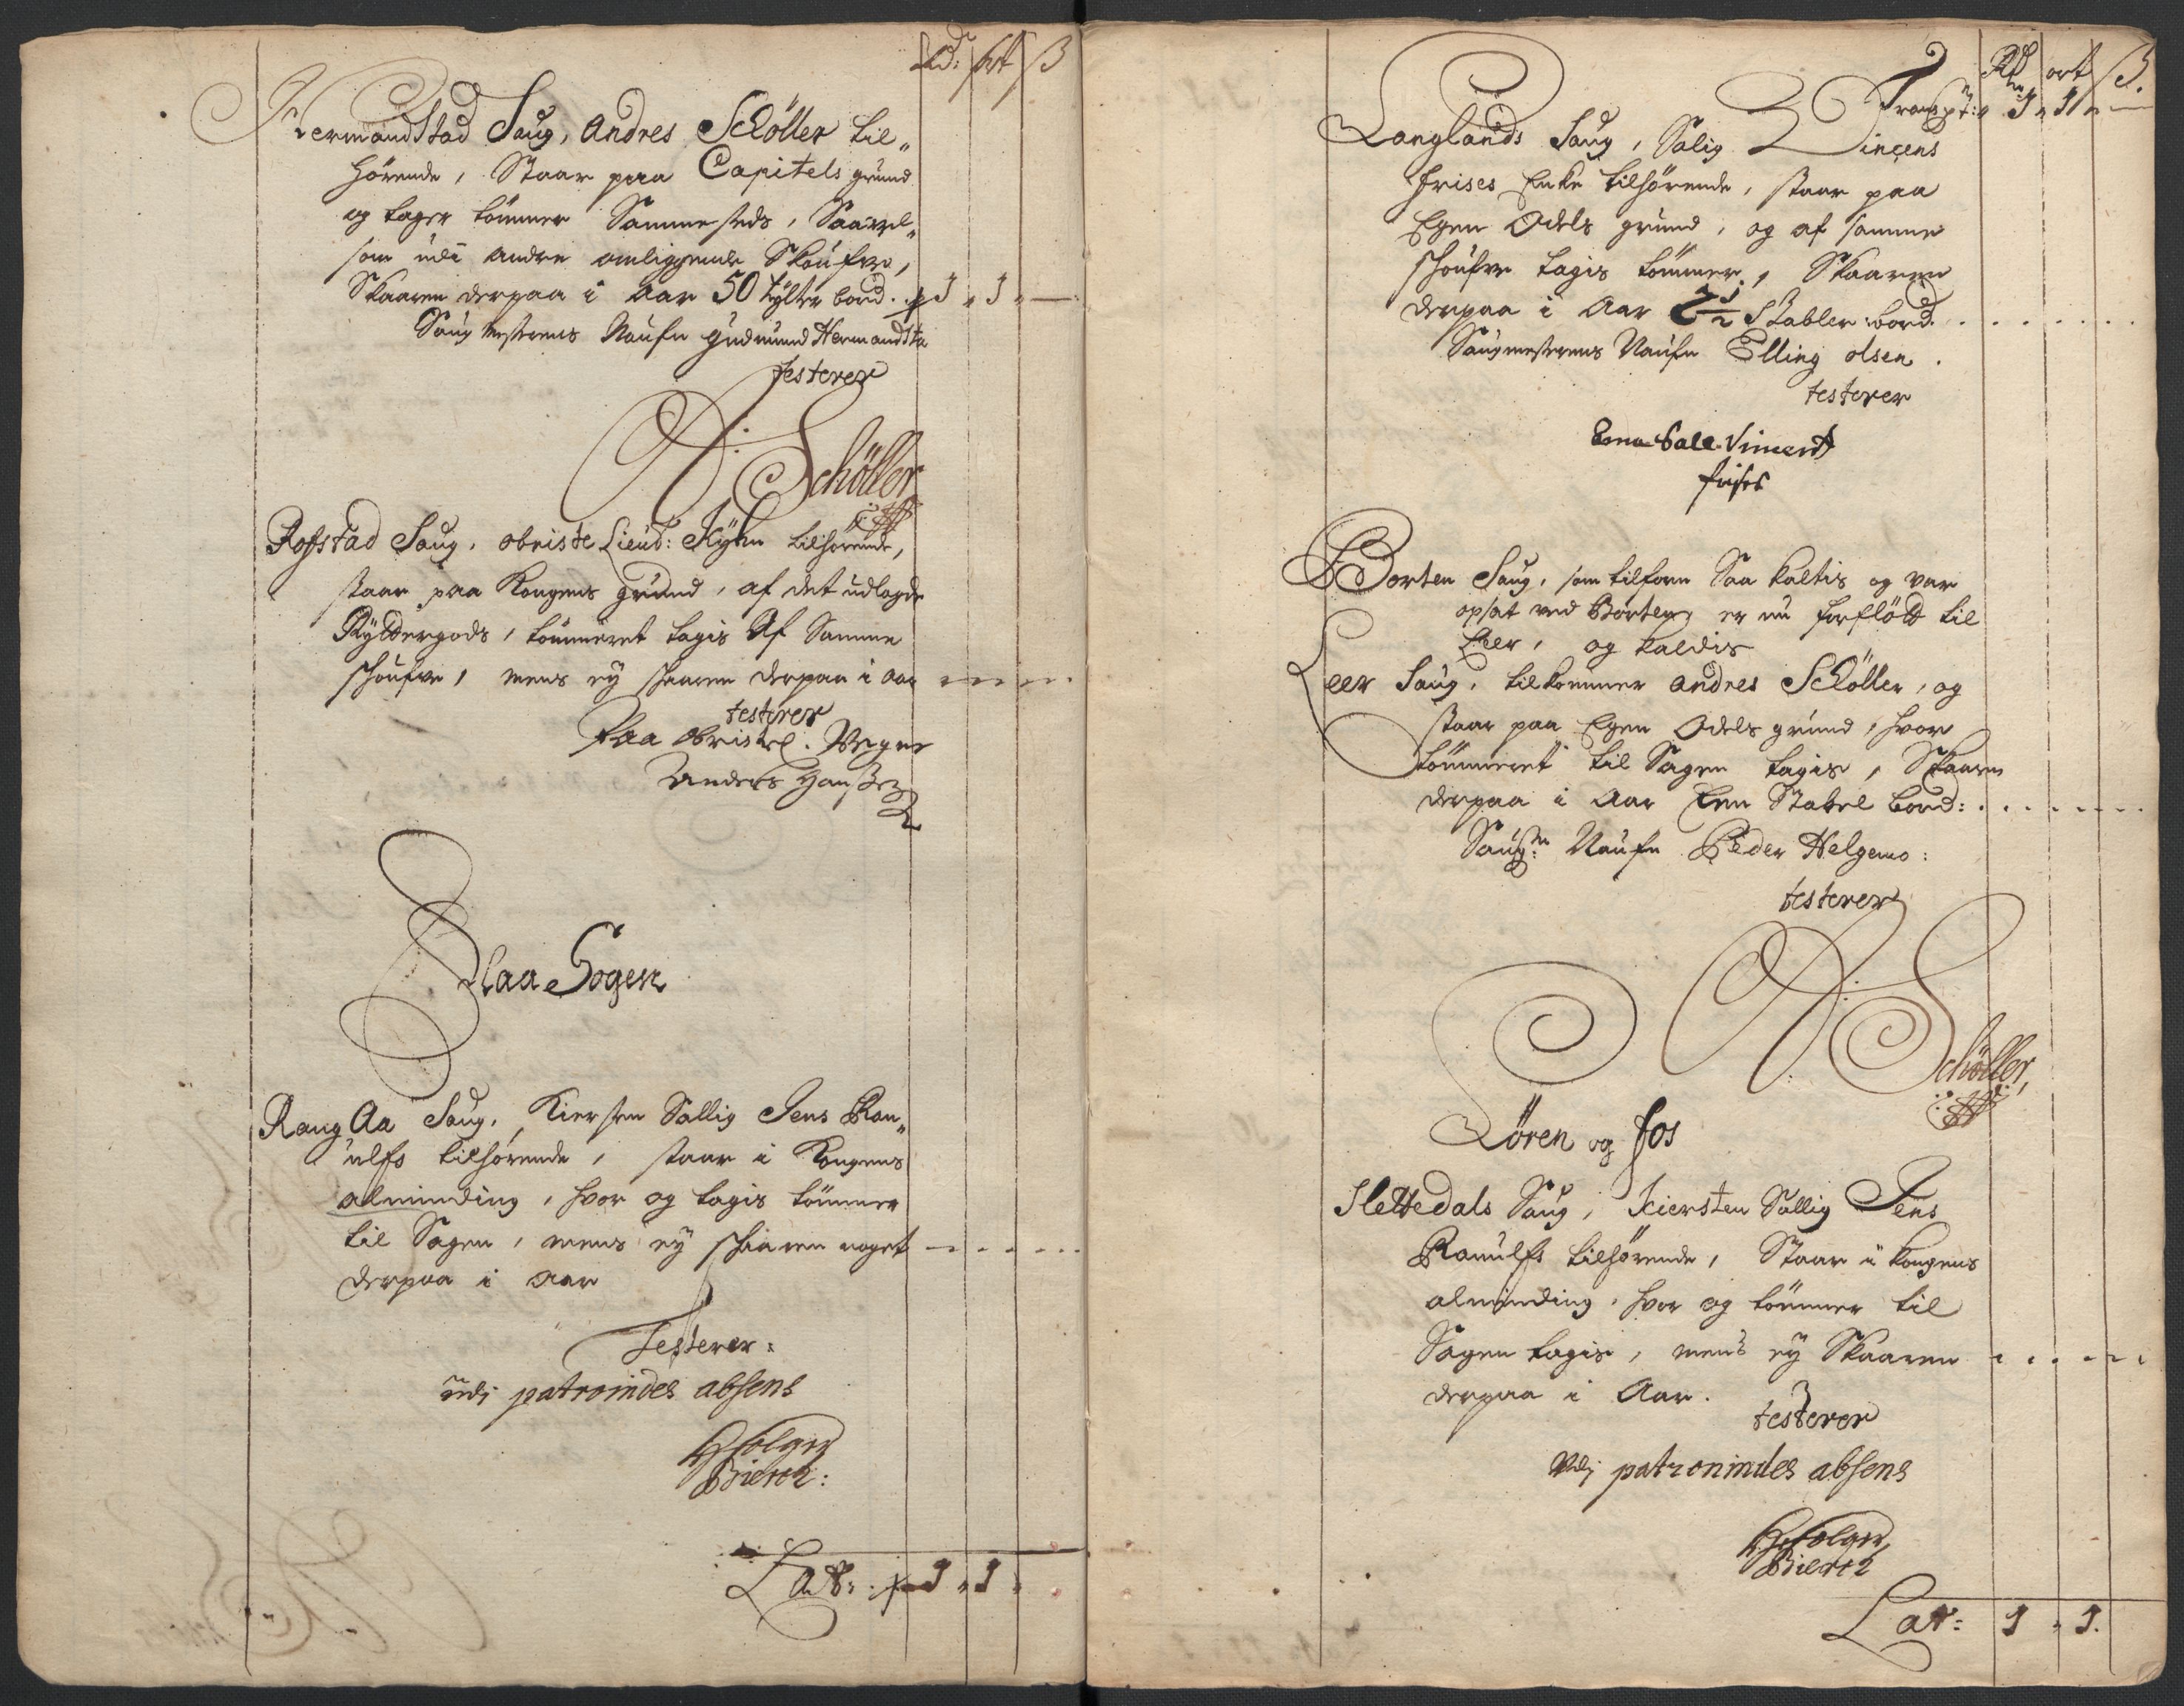 Rd: ort ß
Hermandstad Saug, Andres Schöller til„
hörende, Staar paa Capitels grund
og tager tömmer Sammesteds, Saavel„
som udi andre omliggende Skoufve,
Skaaren derpaa i Aar 50 tylter bord. 1 „ 1 „ —
Saugmesterens Naufn Gudmund Hermandsta
testerer
A: Schöller
Rofstad Saug, obriste Lieut: Kyhn tilhörende,
staar paa Kongens grund, af det udlagde
Ryttergods, tömmeret tagis Af Samme
schoufve, mens ey skaaren derpaa i aar
testerer
Paa Obristl. Vegne
Anders Hanßen
Flaa Sogen
Raug Aa Saug, Kiersten Sallig Jens Ran„
ulfs tilhörende, staar i Kongens
alminding, hvor og tagis tömmer
til Sagen, mens ey schaaren noget
derpaa i aar
Testerer:
udj patronindes absens
Holger
Bierch:
Lat: 1 „ 1 „
Rd ort ß.
Transpt: 1 „ 1 „ —
Langlands Saug, Salig Vincens
frises Enke tilhörende, staar paa
Egen Odels grund, og af samme
schoufve tagis tömmer, Skaaren
derpaa i Aar 2½ Stabler bord.
Saugmesterens Naufn Elling olsen.
testerer
Sale Vincent
frises
Borten Saug, som tilforn Saa kaltis og var
opsat ved Borten, er nu forflött til
Leer, og kaldis
Leer Saug, tilkommer Andres Schöller, og
staar paa Egen Odels grund, hvor
tömmeret til Sagen tagis, Skaaren
derpaa i Aar Een Stabel bord:
Saugm: Naufn Peder Helgemo:
testerer
A: Schöller
Lören og fos
Slettedals Saug, Kiersten Sallig Jens
Ranulfs tilhörende, Staar i Kongens
alminding, hvor og tömmer til
Sagen tagis, mens ey Skaaren
derpaa i Aar.
testerer
Udj patronindes absens
Holger
Bierch
Lat: 1 „ 1.